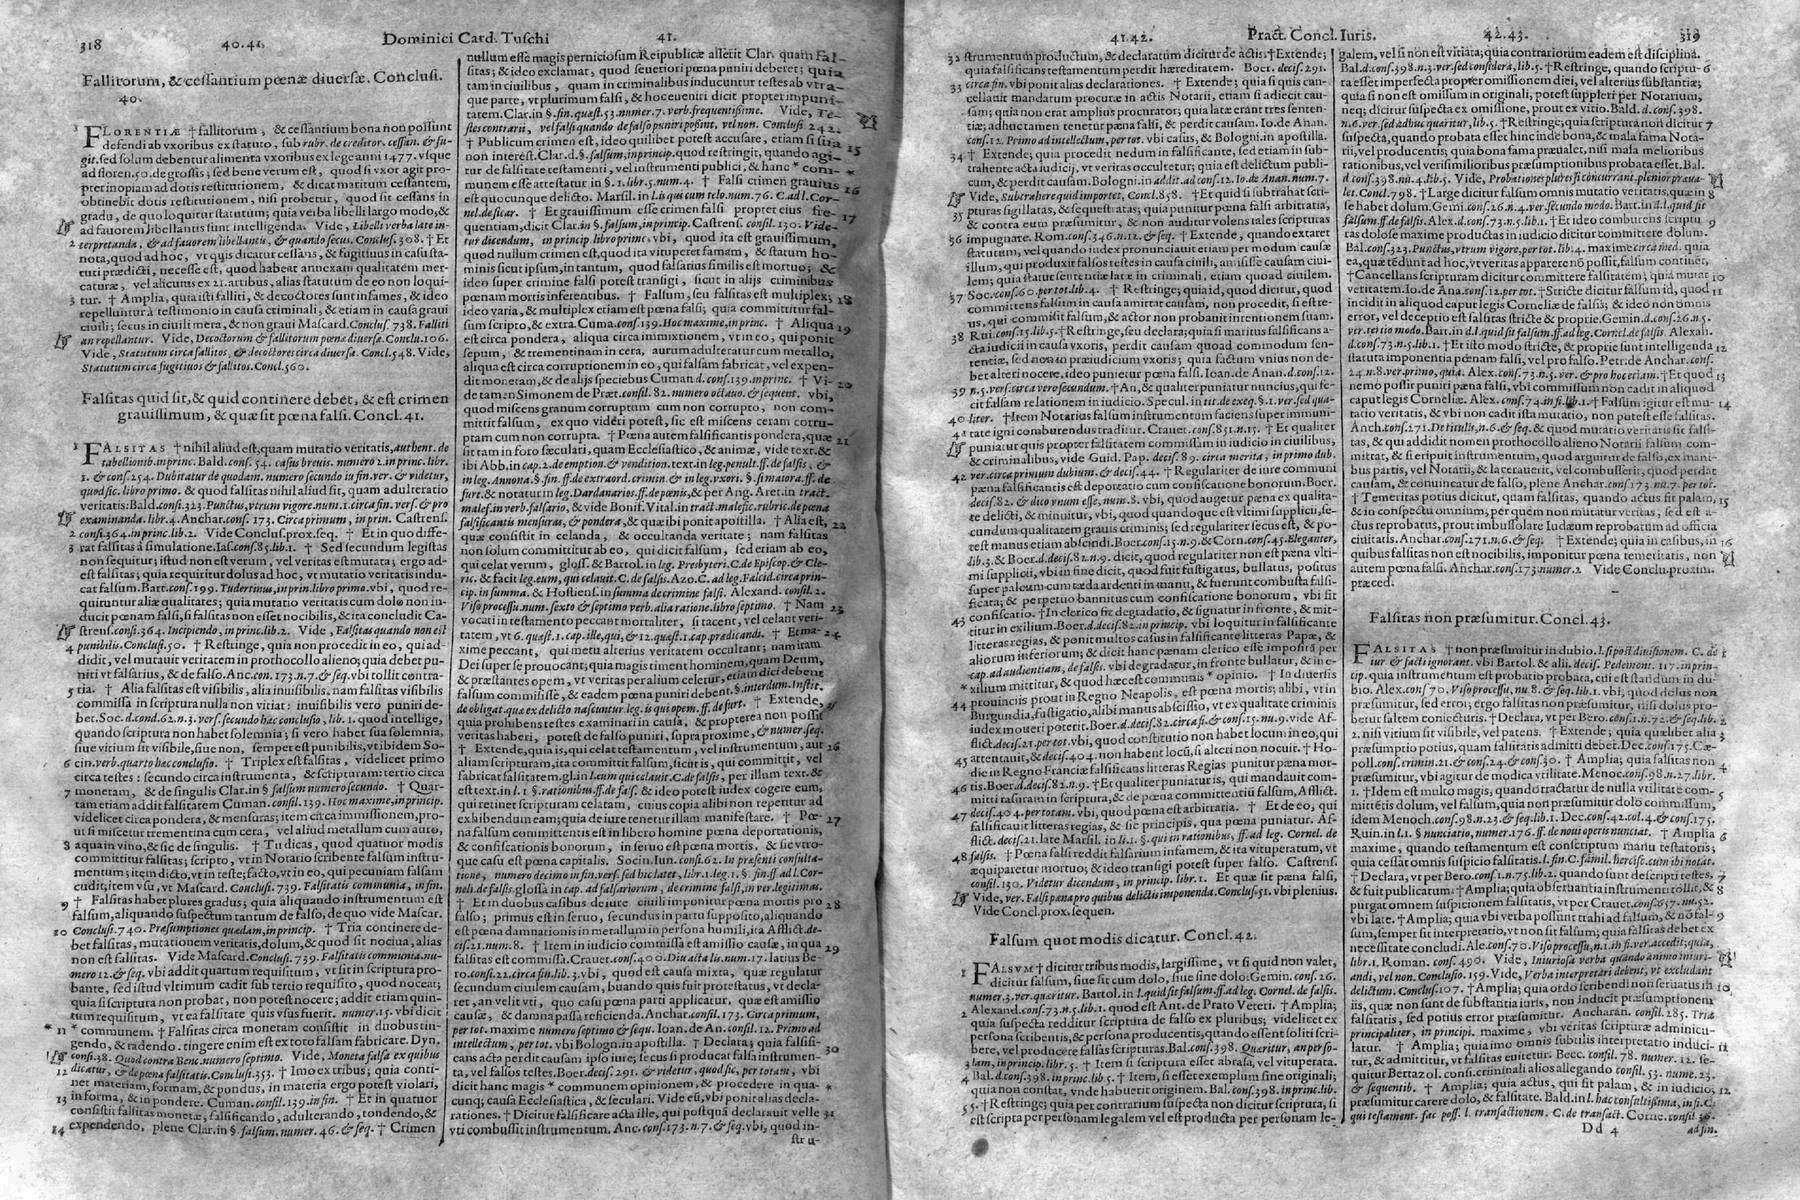 318 40.41. Dominici Card. Tuschi 41.
Fallitorum, & cessantium pœnæ diuersæ. Conclusi.
40.
FLORENTIÆ † fallitorum, & cessantium bona non possunt
defendi ab vxoribus ex statuto, sub rubr. de creditor. cessan. & fu-
git. sed solum debentur alimenta vxoribus ex lege anni 1477. vsque
ad floren. 50. de grossis; sed bene verum est, quod si vxor agit pro-
pter inopiam ad dotis restitutionem, & dicat maritum cessantem,
obtinebit dotis restitutionem, nisi probetur, quod sit cessans in
gradu, de quo loquitur statutum; quia verba libelli largo modo, &
ad fauorem libellantis sunt intelligenda. Vide, Libelli verba late in-
2 terpretanda, & ad fauorem libellantis, & quando secus. Conclus. 308. † Et
nota, quod ad hoc, vt quis dicatur cessans, & fugitiuus in casu sta-
tuti prædicti, necesse est, quod habeat annexam qualitatem mer-
caturæ, vel alicuius ex 21. artibus, alias statutum de eo non loqui-
3 tur. † Amplia, quia isti falliti, & decoctores sunt infames, & ideo
repelluntur à testimonio in causa criminali, & etiam in causa graui
ciuili; secus in ciuili mera, & non graui Mascard. Conclus. 738. Falliti
an repellantur. Vide, Decoctorum & fallitorum pœna diuersa. Conclu. 106.
Vide, Statutum circa fallitos, & decoctores circa diuersa. Concl. 548. Vide,
Statutum circa fugitiuos & fallitos. Concl. 560.
Falsitas quid sit, & quid continere debet, & est crimen
grauissimum, & quæ sit pœna falsi. Concl. 41.
1 FALSITAS † nihil aliud est, quam mutatio veritatis, authent. de
tabellionib. in princ. Bald. cons. 54. casus breuis. numero 2. in princ. libr.
1. & cons. 254. Dubitatur de quodam. numero secundo in fin. ver. & videtur,
quod sic. libro primo. & quod falsitas nihil aliud sit, quam adulteratio
veritatis: Bald. cons. 323. Punctus, vtrum vigore. num. 1. circa fin. vers. & pro
examinanda. libr. 4. Anchar. cons. 173. Circa primum, in prin. Castrens.
2 cons. 364. in princ. lib. 2. Vide Conclus. prox. seq. † Et in quo diffe-
3 rat falsitas à simulatione. Ias. cons. 85. lib. 1. † Sed secundum legistas
non sequitur; istud non est verum, vel veritas est mutata; ergo ad-
est falsitas; quia requiritur dolus ad hoc, vt mutatio veritatis indu-
cat falsum. Bart. cons. 199. Tudertinus, in prin. libro primo. vbi, quod re-
quiruntur aliæ qualitates; quia mutatio veritatis cum dolo non in-
ducit pœnam falsi, si falsitas non esset nocibilis, & ita concludit Ca-
strens. cons. 364. Incipiendo, in princ. lib. 2. Vide, Falsitas quando non est
4 punibilis. Concl. 50. † Restringe, quia non procedit in eo, qui ad-
didit, vel mutauit veritatem in prothocollo alieno; quia debet pu-
niri vt falsarius, & de falso. Anc. con. 173. n. 7. & seq. vbi tollit contra-
5 ria. † Alia falsitas est visibilis, alia inuisibilis. nam falsitas visibilis
commissa in scriptura nulla non vitiat: inuisibilis vero puniri de-
bet. Soc. d. cond. 62. n. 3. vers. secundo hac conclusio, lib. 1. quod intellige,
quando scriptura non habet solemnia; si vero habet sua solemnia,
siue vitium sit visibile, siue non, semper est punibilis, vt ibidem So-
6 cin. verb. quarto hac conclusio. † Triplex est falsitas, videlicet primo
circa testes: secundo circa instrumenta, & scripturam: tertio circa
7 monetam, & de singulis Clar. in § falsum numero secundo. † Quar-
tam etiam addit falsitatem Cuman. consil. 139. Hoc maxime, in princip.
videlicet circa pondera, & mensuras; item circa immissionem, pro-
ut si miscetur trementina cum cera, vel aliud metallum cum auro,
8 aqua in vino, & sic de singulis. † Tu dicas, quod quatuor modis
committitur falsitas; scripto, vt in Notario scribente falsum instru-
mentum; item dicto, vt in teste; facto, vt in eo, qui pecuniam falsam
cudit; item vsu, vt Mascard. Conclus. 739. Falsitatis communia, in fin.
9 † Falsitas habet plures gradus; quia aliquando instrumentum est
falsum, aliquando suspectum tantum de falso, de quo vide Mascar.
10 Conclus. 740. Præsumptiones quædam, in princip. † Tria continere de-
bet falsitas, mutationem veritatis, dolum, & quod sit nociua, alias
non est falsitas. Vide Mascard. Conclus. 739. Falsitatis communia. nu-
mero 12. & seq. vbi addit quartum requisitum, vt sit in scriptura pro-
bante, sed istud vltimum cadit sub tertio requisito, quod noceat;
quia si scriptura non probat, non potest nocere; addit etiam quin-
tum requisitum, vt ea falsitate quis vsus fuerit. numer. 15. vbi dicit
* 11 * communem. † Falsitas circa monetam consistit in duobus tin-
gendo, & radendo. tingere enim est ex toto falsam fabricare. Dyn.
cons. 38. Quod contra Benc. numero septimo. Vide, Moneta falsa ex quibus
12 dicatur, & de pœna falsitatis. Concl. 353. † Imo ex tribus; quia conti-
net materiam, formam, & pondus, in materia ergo potest violari,
13 in forma, & in pondere. Cuman. cons. 139. in fin. † Et in quatuor
consistit falsitas monetæ, falsificando, adulterando, tondendo, &
14 expendendo, plene Clar. in § falsum. numer. 46. & seq. † Crimen
nullum esse magis perniciosum Reipublicæ asserit Clar. quam fal-
sitas; & ideo exclamat, quod seueriori pœna puniri deberet; quia
tam in ciuilibus, quam in criminalibus inducuntur testes ab vtra-
que parte, vt plurimum falsi, & hoc eueniri dicit propter impuni-
tatem. Clar. in §. fin. quæst. 53. numer. 7. verb. frequentissime. Vide, Te-
stes contrarii, vel falsi quando de falso puniri possint, vel non. Conclus. 242.
† Publicum crimen est, ideo quilibet potest accusare, etiam si sua 15
non interest. Clar. d. §. falsum, in princip. quod restringit, quando agi-
tur de falsitate testamenti, vel instrumenti publici, & hanc * com- *
munem esse attestatur in §. 1. libr. 5. num. 4. † Falsi crimen grauius 16
est quocunque delicto. Marsil. in l. si qui cum telo. num. 76. C. ad l. Cor-
nel. de sicar. † Et grauissimum esse crimen falsi propter eius fre- 17
quentiam, dicit Clar. in §. falsum, in princip. Castrens. consil. 130. Vide-
tur dicendum, in princip libro prime. vbi, quod ita est grauissimum,
quod nullum crimen est, quod ita vituperet famam, & statum ho-
minis sicut ipsum, in tantum, quod falsarius similis est mortuo; &
ideo super crimine falsi potest transigi, sicut in alijs criminibus
pœnam mortis inferentibus. † Falsum, seu falsitas est multiplex; 18
ideo varia, & multiplex etiam est pœna falsi; quia committitur fal-
sum scripto, & extra. Cuma. cons. 139. Hoc maxime, in princ. † Aliqua 19
est circa pondera, aliqua circa immixtionem, vt in eo, qui ponit
sepum, & trementinam in cera, aurum adulteratur cum metallo,
aliqua est circa corruptionem in eo, qui falsam fabricat, vel expen-
dit monetam, & de alijs speciebus Cuman. d. cons. 139. in princ. † Vi- 20
de tamen Simonem de Præt. consil. 82. numero octauo. & sequent. vbi,
quod miscens granum corruptum cum non corrupto, non com-
mittit falsum, ex quo videri potest, sic est miscens ceram corru-
ptam cum non corrupta. † Pœna autem falsificantis pondera, quæ 21
sit tam in foro sæculari, quam Ecclesiastico, & animæ, vide text. &
ibi Abb. in cap. 2. de emption. & vendition. text. in leg. penult. ff. de falsis, &
in leg. Annona. §. fin. ff. de extraord. crimin. & in leg. vxori. §. si maiora. ff. de
furt. & notatur in leg. Dardanarios. ff. de pœnis, & per Ang. Aret. in tract.
malef. in verb. falsario, & vide Bonif. Vital. in tract. malefic. rubric. de pœna
falsificantis mensuras, & pondera, & quæ ibi ponit apostilla. † Alia est, 22
quæ consistit in celanda, & occultanda veritate; nam falsitas
non solum committitur ab eo, qui dicit falsum, sed etiam ab eo,
qui celat verum, gloss. & Bartol. in leg. Presbyteri. C. de Episcop. & Cle-
ric. & facit leg. eum, qui celauit. C. de falsis. Azo. C. ad leg. Falcid. circa prin-
cip. in summa. & Hostiens. in summa de crimine falsi. Alexand. consil. 2.
Viso processu. num. sexto & septimo verb. alia ratione. libro septimo. † Nam 23
vocati in testamento peccant mortaliter, si tacent, vel celant veri-
tatem, vt 6. quæst. 1. cap. ille, qui, & 12. quæst. 1. cap. prædicandi. † Et ma- 24
xime peccant, qui metu alterius veritatem occultant; nam iram
Dei super se prouocant; quia magis timent hominem, quam Deum,
& præstantes opem, vt veritas per alium celetur, etiam dici debent
falsum commisisse, & eadem pœna puniri debent. §. interdum. Instit.
de obligat. qua ex delicto nascuntur. leg. is qui opem. ff. de furt. † Extende,
quia prohibens testes examinari in causa, & propterea non possit
veritas haberi, potest de falso puniri, supra proxime, & numer. seq.
† Extende, quia is, qui celat testamentum, vel instrumentum, aut 26
aliam scripturam, ita committit falsum, sicut is, qui committit, vel
fabricat falsitatem. gl. in l. eum qui celauit. C. de falsis, per illum text. &
est text. in l. 1 §. rationibus. ff. de fals. & ideo potest iudex cogere eum,
qui retinet scripturam celatam, cuius copia alibi non repentur ad
exhibendum eam; quia de iure tenetur illam manifestare. † Pœ- 27
na falsum committentis est in libero homine pœna deportationis,
& confiscationis bonorum, in seruo pœna mortis, & sic vtro-
que casu est pœna capitalis. Socin. Iun. cons. 62. In præsenti consulta-
tione, numero decimo in fin. vers. sed hic later, libr. 1. leg. 1. §. fin. ff. ad l. Cor-
neli. de falsis. glossa in cap. ad falsariorum, de crimine falsi, in ver. legitimas.
† Et in duobus casibus de iure ciuili imponitur pœna mortis pro 28
falso; primus est in seruo, secundus in partu supposito, aliquando
est pœna damnationis in metallum in persona humili, ita Afflict. de-
cis. 21. num. 8. † Item in iudicio commissa est amissio causæ, in qua 29
falsitas est commissa. Crauet. cons. 400. Diu acta lis. num. 17. latius Be-
ro. cons. 21. circa fin. lib. 3. vbi, quod est causa mixta, quæ regulatur
secundum ciuilem causam, buando quis fuit protestatus, vt decla-
ret, an velit vti, quo casu pœna parti applicatur, quæ est amissio
causæ, & damna passa reficienda. Anchar. consil. 173. Circa primum,
per tot. maxime numero septimo & sequ. Ioan. de An. consil. 12. Primo ad
intellectum, per tot. vbi Bologn. in apostilla. † Declara; quia falsifi-
cans acta perdit causam ipso iure; secus si producat falsa instrumen- 30
ta, vel falsos testes. Boer. decis. 291. & videtur, quod sic, per totam, vbi
dicit hanc magis * communem opinionem, & procedere in qua- *
cunq; causa Ecclesiastica, & seculari. Vide eū, vbi ponit alias decla-
rationes. † Dicitur falsificare acta ille, qui postquā declarauit velle 31
vti combussit instrumentum. Anc. cons. 173. n. 7. & seq. vbi, quod in-
stru-
41.42. Pract. Concl. Iuris. 42.43. 319
32 strumentum productum, & declaratum dicitur de actis. † Extende;
quia falsificans testamentum perdit hæreditatem. Boer. decis. 291.
33 circa fin. vbi ponit alias declarationes. † Extende; quia si quis can-
cellauit mandatum procuræ in actis Notarii, etiam si adiecit cau-
sam; quia non erat amplius procurator; quia latæ erant tres senten-
tiæ; adhuc tamen tenetur pœna falsi, & perdit causam. Io. de Anan.
cons. 12. Primo ad intellectum, per tot. vbi casus, & Bologn. in apostilla.
34 † Extende; quia procedit nedum in falsificante, sed etiam in sub-
trahente acta iudicij, vt veritas occultetur; quia est delictum publi-
cum, & perdit causam. Bologni. in addit. ad cons. 12. Io. de Anan. num. 7.
Vide, Subtrahere quid importet, Concl. 858. † Et quid si subtrahat scri-
35 pturas sigillatas, & sequestratas; quia punitur pœna falsi arbitraria,
& contra eum præsumitur, & non auditur volens tales scripturas
36 impugnare. Rom. cons. 346. n. 12. & seq. † Extende, quando extaret
statutum, vel quando iudex pronunciauit etiam per modum causæ
illum, qui produxit falsos testes in causa ciuili, amisisse causam ciui-
lem; quia statur sententiæ latæ in criminali, etiam quoad ciuilem.
37 Soc. cons. 60. per tot. lib. 4. † Restringe; quia id, quod dicitur, quod
committens falsum in causa amittat causam, non procedit, si est re-
us, qui commisit falsum, & actor non probauit intentionem suam.
38 Rui. cons. 15. lib. 5. † Restringe, seu declara; quia si maritus falsificans a-
cta iudicii in causa vxoris, perdit causam quoad commodum sen-
tentiæ, sed non in præiudicium vxoris; quia factum vnius non de-
bet alteri nocere, ideo punietur pœna falsi. Ioan. de Anan. d. cons. 12.
39 n. 5. vers. circa vero secundum. † An, & qualiter puniatur nuncius, qui fe-
cit falsam relationem in iudicio. Specul. in tit. de exeq. §. 1. ver. sed qua-
40 liter. † Item Notarius falsum instrumentum faciens super immuni-
41 tate igni comburendus traditur. Crauet. cons. 851. n. 15. † Et qualiter
puniatur quis propter falsitatem commissam in iudicio in ciuilibus,
& criminalibus, vide Guid. Pap. decis. 89. circa merita, in primo dub.
42 ver. circa primum dubium. & decis. 44. † Regulariter de iure communi
pœna falsificantis est deportatio cum confiscatione bonorum. Boer.
decis. 82. & duo vnum esse, num. 8. vbi, quod augetur pœna ex qualita-
te delicti, & minuitur, quod quandoque est vltimi supplicii, se-
cundum qualitatem grauis criminis; sed regulariter secus est, & po-
test manus etiam abscindi. Boer. cons. 15. n. 9. & Corn. cons. 45. Eleganter,
lib. 3. & Boer. d. decis. 82. n. 9. dicit, quod regulariter non est pæna vlti-
mi supplicii, vbi in fine dicit, quod fuit fustigatus, bullatus, positus
super palcum cum tæda ardenti in manu, & fuerunt combusta falsi-
ficata; & perpetuo bannitus cum confiscatione bonorum, vbi sit
43 confiscatio. † In clerico sit degradatio, & signatur in fronte, & mit-
titur in exilium. Boer. d. decis. 82. in princip. vbi loquitur in falsificante
litteras regias, & ponit multos casus in falsificante litteras Papæ, &
aliorum inferiorum; & dicit hanc pœnam clerico esse impositā per
cap. ad audientiam, de falsis. vbi degradatur, in fronte bullatur, & in e-
* xilium mittitur, & quod hæc est communis * opinio. † In diuersis
44 prouinciis prout in Regno Neapolis, est pœna mortis; alibi, vt in
Burgundia, fustigatio, alibi manus abscissio, vt ex qualitate criminis
index moueri poterit. Boer. d. decis. 82. circa fi. & cons. 15. nu. 9. vide Af-
flict. decis. 21. per tot. vbi, quod constitutio non habet locum in eo, qui
45 attentauit, & decis. 404. non habent locū, si alteri non nocuit. † Ho-
die in Regno Franciæ falsificans litteras Regias punitur pœna mor-
46 tis. Boer. d. decis. 82. n. 9. † Et qualiter puniatur is, qui mandauit com-
mitti rasuram in scriptura, & de pœna committentiū falsum, Afflict.
47 decis. 404. per totam. vbi, quod pœna est arbitraria. † Et de eo, qui
falsificauit litteras regias, & sic principis, qua pœna puniatur. Af-
flict. decis. 21. late Marsil. in l. 1. §. qui in rationibus, ff. ad leg. Cornel. de
48 falsis. † Pœna falsi reddit falsarium infamem, & ita vituperatum, vt
æquiparetur mortuo; & ideo transigi potest super falso. Castrens.
consil. 130. Videtur dicendum, in princip. libr. 1. Et quæ sit pœna falsi,
Vide, ver. Falsi pæna pro quibus delictis imponenda. Conclus. 51. vbi plenius.
Vide Concl. prox. sequen.
Falsum quot modis dicatur. Concl. 42.
1 FALSVM † dicitur tribus modis, largissime, vt si quid non valet,
dicitur falsum, siue sit cum dolo, siue sine dolo: Gemin. cons. 26.
numer. 3. ver. quaritur. Bartol. in l. quid sit falsum. ff. ad leg. Cornel. de falsis.
2 Alexand. cons. 73. n. 5. lib. 1. quod est Ant. de Prato Veteri. † Amplia;
quia suspecta redditur scriptura de falso ex pluribus; videlicet ex
persona scribentis, & persona producentis, quando essent soliti scri-
bere, vel producere falsas scripturas. Bal. cons. 398. Quæritur, an perso-
3 lam, in princip. libr. 5. † Item si scriptura esset abrasa, vel vituperata.
4 Bal. d. cons. 398. in princ. lib. 5. † Item, si esset exemplum sine originali;
quia non constat, vnde habuerit originem. Bal. cons. 398. in princ. lib.
5 5. † Restringe; quia per contrarium suspecta non dicitur scriptura, si
est scripta per personam legalem vel est producta per personam le-
galem, vel si non est vitiata; quia contrariorum eadem est disciplina.
Bal. d. cons. 398. n. 3. ver. sed considera, lib. 5. † Restringe, quando scriptu- 6
ra esset imperfecta propter omissionem diei, vel alterius substantiæ;
quia si non est omissum in originali, potest suppleri per Notarium,
neq; dicitur suspecta ex omissione, prout ex vitio. Bald. d. cons. 398.
n. 6. ver. sed adhuc quæritur, lib. 5. † Restringe; quia scriptura non dicitur 7
suspecta, quando probata esset hinc inde bona, & mala fama Nota-
rii, vel producentis; quia bona fama præualet, nisi mala melioribus
rationibus, vel verisimilioribus præsumptionibus probata esset. Bal.
d. cons. 398. nu. 4. lib. 5. Vide, Probationes plures si concurrant. plenior præua-
let. Concl. 798. † Large dicitur falsum omnis mutatio veritatis, quæ in 8
se habet dolum. Gemi. cons. 26. n. 4. ver. secundo modo. Bart. in d. l. quid sit
falsum. ff. de falsis. Alex. d. cons. 73. n. 5. lib. 1. † Et ideo comburens scriptu 9
ras dolose maxime productas in iudicio dicitur committere dolum.
Bal. cons. 323. Punctus, vtrum vigore. per tot. lib. 4. maxime circa med. quia
ea, quæ tēdunt ad hoc, vt veritas apparere nō possit, falsum continet,
† Cancellans scripturam dicitur committere falsitatem; quia mutat 10
veritatem. Io. de Ana. cons. 12. per tot. † Stricte dicitur falsum id, quod 11
incidit in aliquod caput legis Corneliæ de falsis; & ideo non omnis
error, vel deceptio est falsitas stricte & proprie. Gemin. d. cons. 26. n. 5.
ver. tertio modo. Bart. in d. l. quid sit falsum. ff. ad leg. Cornel. de falsis. Alexan.
d. cons. 73. n. 5. lib. 1. † Et isto modo stricte, & proprie sunt intelligenda 12
statuta imponentia pœnam falsi, vel pro falso. Petr. de Anchar. cons.
24. n. 8. ver. primo, quia. Alex. cons. 73. n. 5. ver. & pro hoc etiam. † Et quod 13
nemo possit puniri pœna falsi, vbi commissum non cadit in aliquod
caput legis Corneliæ. Alex. cons. 74. in fi. lib. 1. † Falsum igitur est mu- 14
tatio veritatis, & vbi non cadit ista mutatio, non potest esse falsitas.
Anch. cons. 271. De titulis, n. 6. & seq. & quod mutatio veritatis sit fal-
sitas, & qui addidit nomen prothocollo alieno Notarii falsum com-
mittat, & si eripuit instrumentum, quod arguitur de falso, ex mani-
bus partis, vel Notarii, & lacerauerit, vel combusserit, quod perdat
causam, & conuincatur de falso, plene Anchar. cons. 173 nu. 7. per tot.
† Temeritas potius dicitur, quam falsitas, quando actus fit palam, 15
& in conspectu omnium; per quem non mutatur veritas, sed est a-
ctus reprobatus, prout imbussolare Iudæum reprobatum ad officia
ciuitatis. Anchar. cons. 271. n. 6. & seq. † Extende; quia in casibus, in 16
quibus falsitas non est nocibilis, imponitur pœna temeritatis, non
autem pœna falsi. Anchar. cons. 173 numer. 2 Vide Conclu. proxim.
præced.
Falsitas non præsumitur. Concl. 43.
FALSITAS † non præsumitur in dubio. l. si post diuisionem. C. de 1
iur. & facti ignorant. vbi Bartol. & alii. decis. Pedemont. 117. in prin-
cip. quia instrumentis probatio probata, cui est standum in du-
bio. Alex. cons. 70. Viso processu, nu. 8. & seq. lib. 1. vbi, quod dolus non
præsumitur, sed error; ergo falsitas non præsumitur, nisi dolus pro-
betur saltem coniecturis. † Declara, vt per Bero. cons. 1. n. 72. & seq. lib. 2
2. nisi vitium sit visibile, vel patens. † Extende; quia quælibet alia 3
præsumptio potius, quam falsitatis admitti debet. Dec. cons. 175. Cæ-
poll. cons. crimin. 21. & cons. 24. & cons. 30. † Amplia; quia falsitas non 4
præsumitur, vbi agitur de modica vtilitate. Menoc. cons. 98. n. 27. libr.
1. † Idem est multo magis; quando tractatur de nulla vtilitate com- 5
mittētis dolum, vel falsum, quia non præsumitur dolo commissum,
idem Menoch. cons. 98. n. 23. & seq. lib. 1. Dec. cons. 42. col. 4. & cons. 175.
Ruin. in l. 1. § nunciatio, numer. 176. ff. de noui operis nunciat. † Amplia 6
maxime; quando testamentum est conscriptum manu testatoris;
quia cessat omnis suspicio falsitatis. l. fin. C. famil. hercisc. cum ibi notat.
† Declara, vt per Bero. cons. 1. n. 75. lib. 2. quando sunt descripti testes, 7
& fuit publicatum. † Amplia; quia obseruantia instrument. tollit, & 8
purgat omnem suspicionem falsitatis, vt per Crauet. cons. 657. nu. 52.
vbi late. † Amplia; quia vbi verba possunt trahi ad falsum, & nō fal- 9
sum, semper sit interpretatio, vt non sit falsum; quia falsitas debet ex
necessitate concludi. Ale. cons. 70. Viso processu, n. 1. in fi. ver. accedit; quia,
libr. 1. Roman. cons. 490. Vide, Iniuriosa verba quando animo iniuri-
andi, vel non. Conclusio. 159. Vide, Verba interpretari debent, vt excludant
delictum. Concl. 107. † Amplia; quia ordo scribendi non seruatus in 10
iis, quæ non sunt de substantia iuris, non inducit præsumptionem
falsitatis, sed potius error præsumitur. Ancharan. consil. 285. Tria
principaliter, in principi. maxime, vbi veritas scripturæ adminicu-
latur. † Amplia; quia imo omnis subtilis interpretatio induci- 11
tur, & admittitur, vt falsitas euitetur. Becc. consil. 78. numer. 12. se-
quitur Bertazol. consi. criminali alios allegando consil. 53. nume. 23.
& sequentib. † Amplia; quia actus, qui fit palam, & in iudicio, 12
præsumitur carere dolo, & falsitate. Bald. in l. hac consultissima, in fi. C.
qui testament. fac. poss. l. transactionem. C. de transact. Corne. consil. 36.
Dd 4 ad fin.